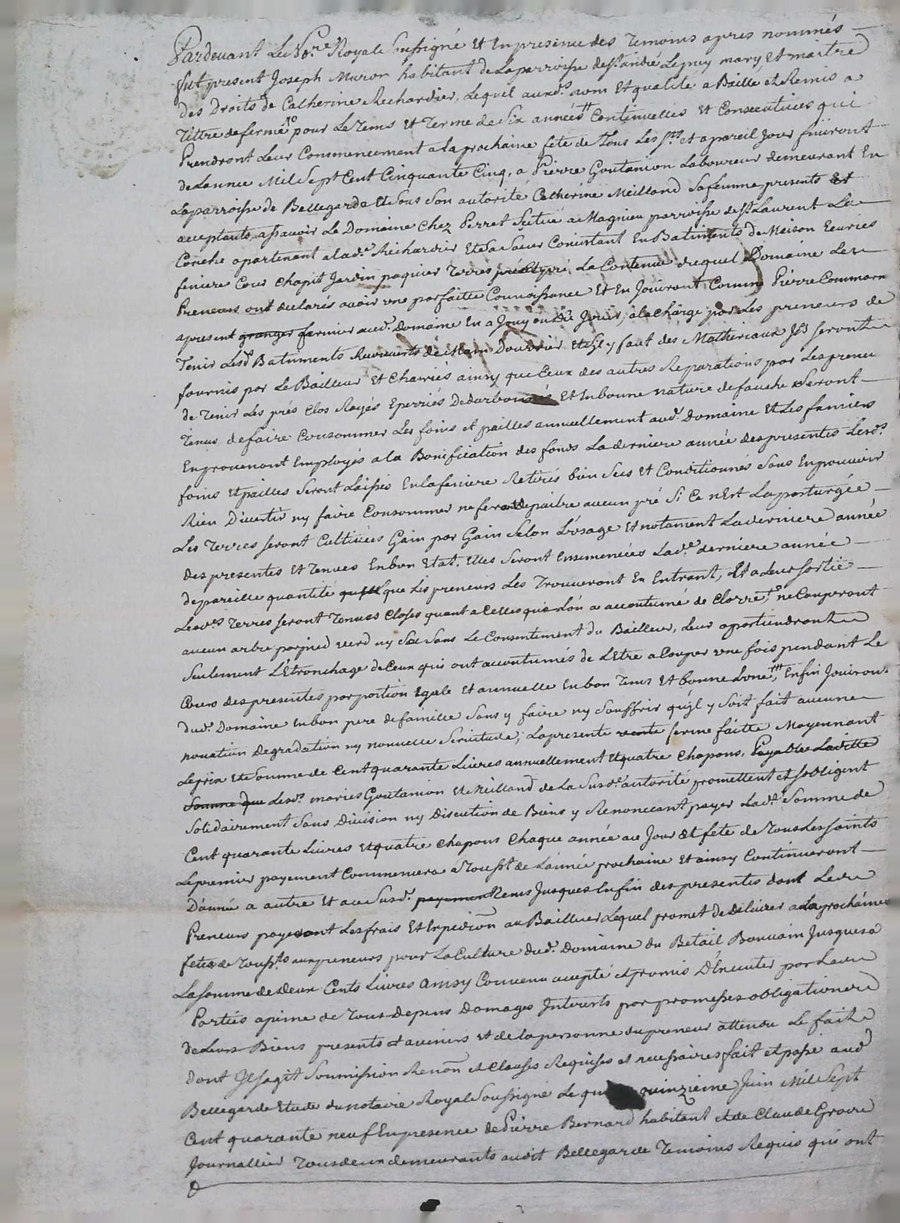 Pardevant Le No.re Royale Soussigné Et En presence des Temoins apres nommés
fut present Joseph Muron habitant de La parroisse de st andré Le puy mary Et maitre
des Droits de Catherine Rechardier, Lequel auxd.s nom Et qualité a Baillé et Remis a
Tittre de ferme pour Le Tems Et Terme de Six années Continuelles Et Consecutives qui
Prendront Leur Commencement a la prochaine fête de Tous Les sts et a pareil Jour finiront
de Lannée Mil Sept Cent Cinquante Cinq, a Pierre Goutanion Laboureur demeurant En
La parroisse de Bellegarde Et Sous Son autorité Catherine Meilland Sa femme presents Et
acceptants, assavoir Le Domaine Chez Perret Scitué a Magnieu parroisse de st Laurent La
Conche apartenant a lad.e Richardier Et Sa Sœur Consistant En Batiments de Maison Ecuries
feniere Cour Chapit Jardin paquier Terres La Contenue duquel Domaine Les
Preneurs ont declarés avoir une parfaitte Connoissance Et En Jouiront Comme Pierre Commarm
apresent granger fermier aud. Domaine En a Jouy ou dû Jouir, a la Charge par Les preneurs de
Tenir Lesd. Batiments Recouverts de Main Douvrier Et s'il y faut des Matheriaux Ils Seront
fournis par Le Bailleur Et Charriés ainsy que Ceux des autres Reparations par Les preneurs
de Tenir Les prés Clos Rayés Eperriés Et En bonne nature de fauche Seront
Tenus de faire Consommer Les foins et pailles annuellement aud. Domaine Et Les fumiers
En provenant Employés a la Bonification des fonds La derniere année des presentes Lesd.s
foins Et pailles Seront Laissés En La feniere Retirés bien Secs Et Conditionnés Sans En pouvoir
Rien Divertir ny faire Consommer ne feront paitre aucun pré Si Ce n'Est La porturgee
Les Terres Seront Cultivées Gain par Gain Selon L'Usage Et notament La derniere année
des presentes Et Tenues En bon Etat. Elles Seront Ensemencées Lad.e derniere année
de pareille quantité que Les preneurs Les Trouveront En Entrant, Et a Leur Sortie
Lesd.s Terres Seront Tenues Closes quant a Celles que Lon a accoutumé de Clorre, ne Couperont
aucun arbre par pied verd ny Sec Sans Le Consentement du Bailleur, Leur apartiendront
Seulement L'Etronchage de Ceux qui ont accoutumés de L'Etre a Couper une fois pendant Le
Cours des presentes par portion Egale Et annuelle En bon Tems Et bonne Lune, Enfin Jouiront
dud. Domaine En bon pere de famille Sans y faire ny Souffrir qu'il y Soit fait aucune
novation Degradation ny nouvelle Servitude; La presente vente ferme faitte Moyennant
Le prix Et Somme de Cent quarante Livres annuellement Et quatre Chapons, Payable Laditte
Somme que Lesd. mariés Goutanion Et Meilland de La Susd.e autorité promettent et Sobligent
Solidairement Sans Division ny Discution de Biens y Renoncant payer Lad.e Somme de
Cent quarante Livres Et quatre Chapons Chaque année au Jour Et fête de Tous Les Saints
Le premier payement Commencera a Touss.t de Lannée prochaine Et ainsy Continueront
Dannée a autre Et au Susd. payement Tems Jusques En fin des presentes dont Les
Preneurs payeront Les frais Et Expedition au Bailleur Lequel promet de Delivrer a La prochaine
fete de Touss.ts aux preneurs pour La Culture dud. Domaine du Betail Bouvain Jusques a
La Somme de Deux Cents Livres Ainsy Convenu accepté et promis D'Executer par Les
Parties a peine de Tous Depens Domages Interets par promesses obligation
de Leurs Biens presents et avenirs et de La personne du preneur attendu Le fait
dont Il Sagit Soumission Renon et Clauses Requises et necessaires fait et passé aud.
Bellegarde Etude du notaire Royal Soussigné Le quinzieme Juin Mil Sept
Cent quarante neuf En presence de Pierre Bernard habitant et de Claude
Journallier Tous deux demeurants audit Bellegarde Temoins Requis qui ont